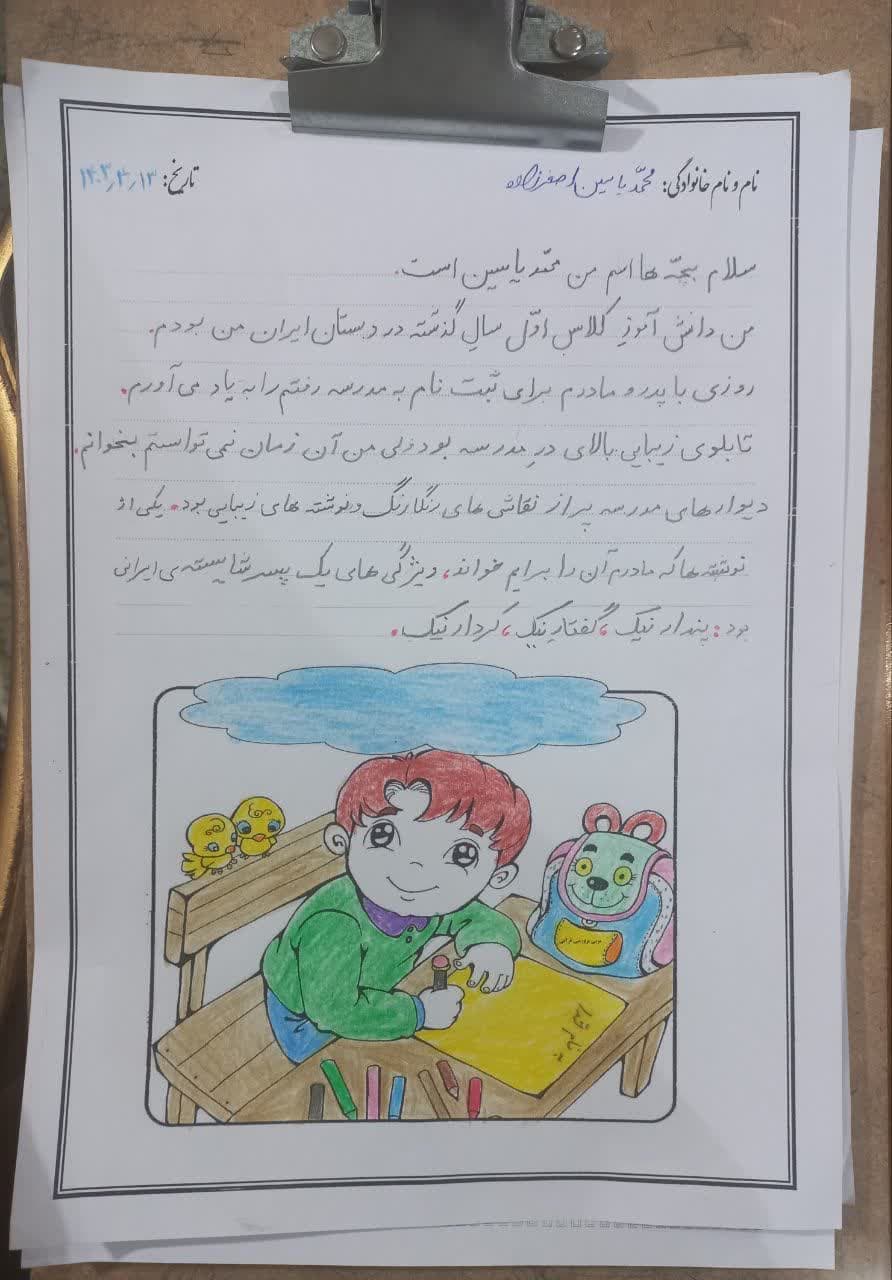 نام و نام خانوادگی: محمّد یاسین اصغرزاده
تاریخ: ۱۴۰۳٫۴٫۱۳
سلام بچّه ها اسم من محمّد یاسین است.
من دانش آموزِ کلاسِ اوّل سالِ گذشته در دبستان ایران من بودم.
روزی با پدر و مادرم برای ثبت نام به مدرسه رفتم را به یاد می آورم.
تابلوی زیبایی بالای درِ مدرسه بود ولی من آن زمان نمی توانستم بخوانم.
دیوارهای مدرسه پر از نقاشی های رنگارنگ و نوشته های زیبایی بود. یکی از
نوشته ها که مادرم آن را برایم خواند، ویژگی های یک پسر شایسته ی ایرانی
بود: پندار نیک، گفتارِ نیک، کردار نیک.
به نام خدا